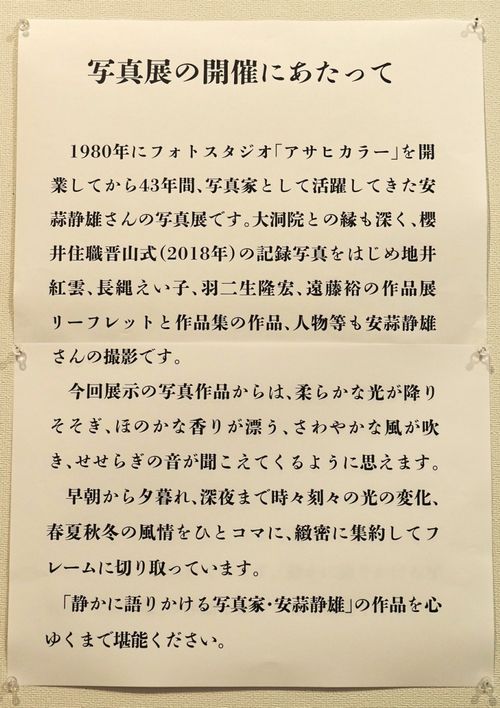 写真展の開催にあたって
1980年にフォトスタジオ「アサヒカラー」を開
業してから43年間、写真家として活躍してきた安
蒜静雄さんの写真展です。大洞院との縁も深く、櫻
井住職晋山式(2018年)の記録写真をはじめ地井
紅雲、長縄えい子、羽二生隆宏、遠藤裕の作品展
リーフレットと作品集の作品、人物等も安蒜静雄
さんの撮影です。
今回展示の写真作品からは、柔らかな光が降り
そそぎ、ほのかな香りが漂う、さわやかな風が吹
き、せせらぎの音が聞こえてくるように思えます。
早朝から夕暮れ、深夜まで時々刻々の光の変化、
春夏秋冬の風情をひとコマに、緻密に集約してフ
レームに切り取っています。
「静かに語りかける写真家・安蒜静雄」の作品を心
ゆくまで堪能ください。